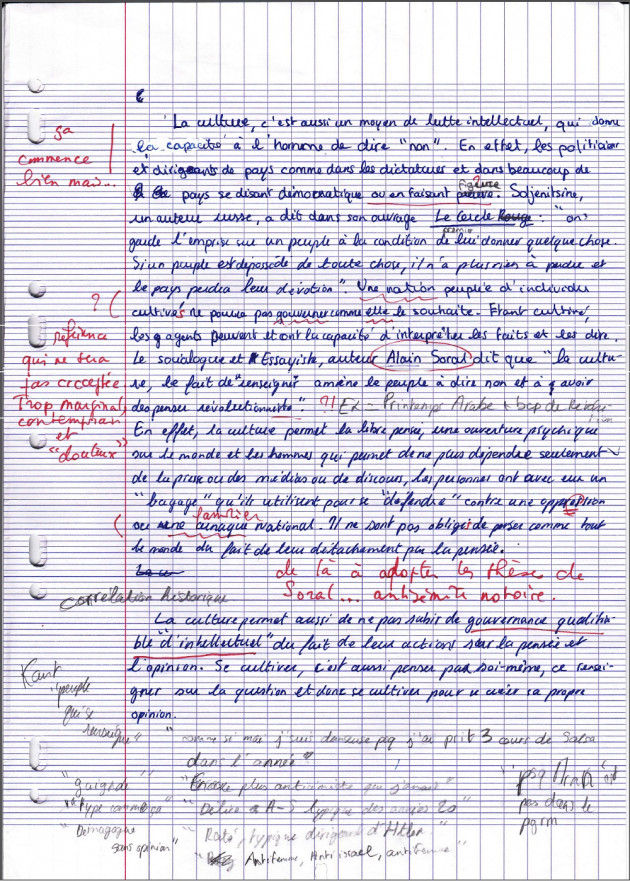 La culture, c'est aussi un moyen de lutte intellectuel, qui donne
la capacité à l'homme de dire "non". En effet, les politiciens
et dirigeants de pays comme dans les dictatures et dans beaucoup de
pays se disant démocratique ou en faisant figure. Soljenitsine,
un auteur russe, a dit dans son ouvrage Le Cercle Rouge : "on
premier
garde l'emprise sur un peuple à la condition de lui donner quelque chose.
Si un peuple est dépossédé de toute chose, il n'a plus rien à perdre et
le pays perdra leur dévotion". Une nation peuplée d'individus
cultivés ne pourra pas gouverner comme elle le souhaite. Etant cultivé,
les agents peuvent et ont la capacité d'interpréter les faits et les dire.
Le sociologue et Essayiste, auteur Alain Soral dit que "la cultu-
re, le fait de renseigner amène le peuple à dire non et à avoir
des penser révolutionnaire" ?! Ex = Printemps Arabe + bcp de
En effet, la culture permet la libre pensée, une ouverture psychique
sur le monde et les hommes qui permet de ne plus dépendre seulement
de la presse ou des médias ou de discours, les personnes ont avec eux un
"bagage" qu'ils utilisent pour se "défendre" contre une oppression
familier
ou une arnaque national. Il ne sont pas obligé de penser comme tout
le monde du fait de leur détachement par la pensée.
de là à adopter les thèses de
Soral... antisémite notoire.
Corrélation historique
La culture permet aussi de ne pas subir de gouvernance qualifia-
ble "d'intellectuel" du fait de leur actions sur la pensée et
l'opinion. Se cultiver, c'est aussi penser par soi-même, ce rensei-
gner sur la question et donc se cultiver pour ce créer sa propre
opinion.
ça
commence
bien mais...
?
référence
qui ne sera
pas acceptée
Trop marginal,
contemporain
et
"douteux"
Kant
"peuple
qui se
"comme si moi j'suis danseuse pcq j'ai prit 3 cours de Salsa
dans l'année"
"Encore plus antisémiste que jamais"
"Délire A-S typique des années 20"
"Raté, typique dirigeant d'Hitler"
Antifemme, Anti israel, antifemme"
"Demagogue
sans opinion"
pas dans le
pgrm